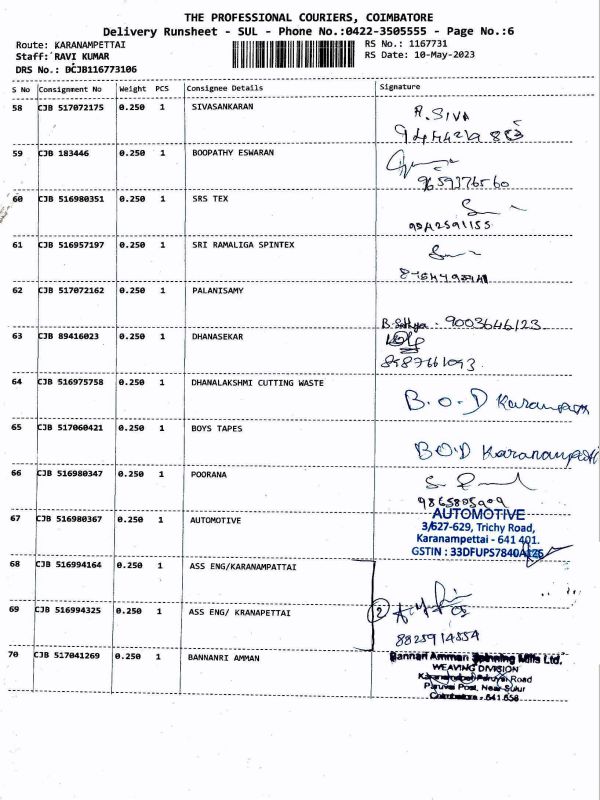 THE PROFESSIONAL COURIERS, COIMBATORE
Delivery Runsheet - SUL - Phone No.:0422-3505555 - Page No.:6
Route: KARANAMPETTAI RS No.: 1167731
Staff: RAVI KUMAR RS Date: 10-May-2023
DRS No.: DCJB116773106
S No Consignment No Weight PCS Consignee Details Signature
58 CJB 517072175 0.250 1 SIVASANKARAN
R. SIVA
59 CJB 183446 0.250 1 BOOPATHY ESWARAN
9659376560
60 CJB 516980351 0.250 1 SRS TEX
9942591155
61 CJB 516957197 0.250 1 SRI RAMALIGA SPINTEX
62 CJB 517072162 0.250 1 PALANISAMY
B. Sathya - 9003646123
63 CJB 89416023 0.250 1 DHANASEKAR
8987661093
64 CJB 516975758 0.250 1 DHANALAKSHMI CUTTING WASTE
B.O.D Karanampatti
65 CJB 517060421 0.250 1 BOYS TAPES
B.O.D Karanampatti
66 CJB 516980347 0.250 1 POORANA
9865805909
67 CJB 516980367 0.250 1 AUTOMOTIVE
AUTOMOTIVE
3/627-629, Trichy Road,
Karanampettai - 641 401.
GSTIN : 33DFUPS7840A1Z6
68 CJB 516994164 0.250 1 ASS ENG/KARANAMPATTAI
69 CJB 516994325 0.250 1 ASS ENG/ KRANAPETTAI
2
8825914554
70 CJB 517041269 0.250 1 BANNANRI AMMAN
Bannari Amman Spinning Mills Ltd,
WEAVING DIVISION
Karanampet Paruvai Road
Paruvai Post, Near Sulur
Coimbatore - 641 658